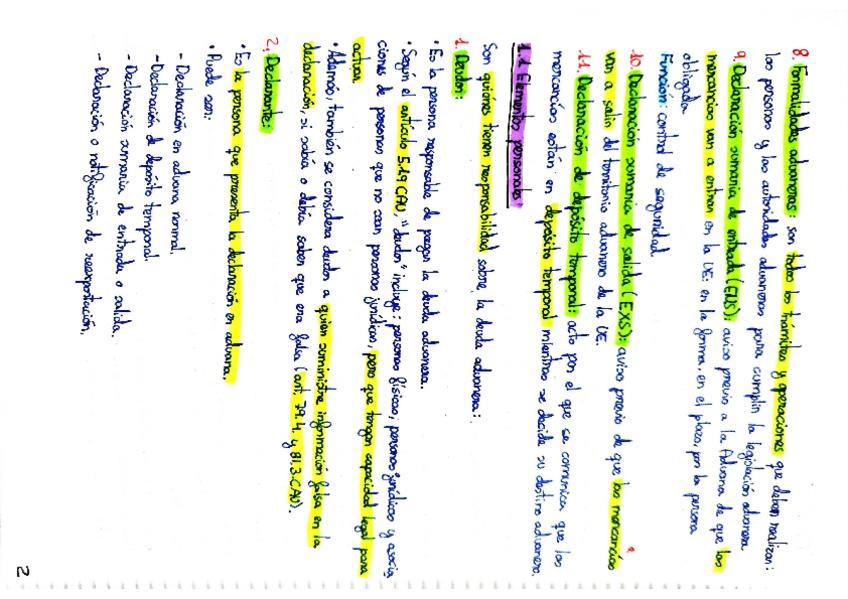 8. Formalidades aduaneras: son todos los trámites y operaciones que deben realizar:
las personas y las autoridades aduaneras para cumplir la legislación aduanera
9. Declaración sumaria de entrada (ENS): aviso previo a la Aduana de que las
mercancías van a entrar en la UE: en la forma, en el plazo, por la persona
obligada
Función: control de seguridad
10. Declaración sumaria de salida (EXS): aviso previo de que las mercancías
van a salir del territorio aduanero de la UE.
11. Declaración de depósito temporal: acto por el que se comunica que las
mercancías están en depósito temporal mientras se decide su destino aduanero.
1.2 Elementos personales:
Son quiénes tienen responsabilidad sobre la deuda aduanera:
1. Deudor:
• Es la persona responsable de pagar la deuda aduanera.
• Según el artículo 5.19 CAU, "deudor" incluye: personas físicas, personas jurídicas y asocia
ciones de personas que no sean personas jurídicas, pero que tengan capacidad legal para
actuar
• Además, también se considera deudor a quien suministre información falsa en la
declaración, si sabía o debía saber que era falsa (art. 79.4. y 81.3-CAU).
2. Declarante:
• Es la persona que presenta la declaración en aduana.
• Puede ser:
- Declaración en aduana normal.
- Declaración de depósito temporal.
- Declaración sumaria de entrada o salida.
- Declaración o notificación de reexportación.
2